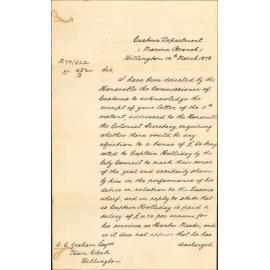 Customs Department
(Marine Branch)
Wellington 14th March 1878
M 78/622
No 452/B
Sir
I have been directed by the
Honorable the Commissioner of
Customs to acknowledge the
receipt of your letter of the
instant, addressed to the Honorable
the Colonial Secretary enquiring
whether there would be any
objection to a bonus of £50 being
voted to Captain Holliday by the
City Council to mark their sense
of the zeal and assiduity shown
by him in the performance of his
duties in relation to the Queens
wharf, and in reply to state that
as Captain Holliday is paid a
salary of £450 per annum for
his services as Harbor Master and
as it does not appear that he has
discharged
C. C. Graham Esqre
Town Clerk
Wellington